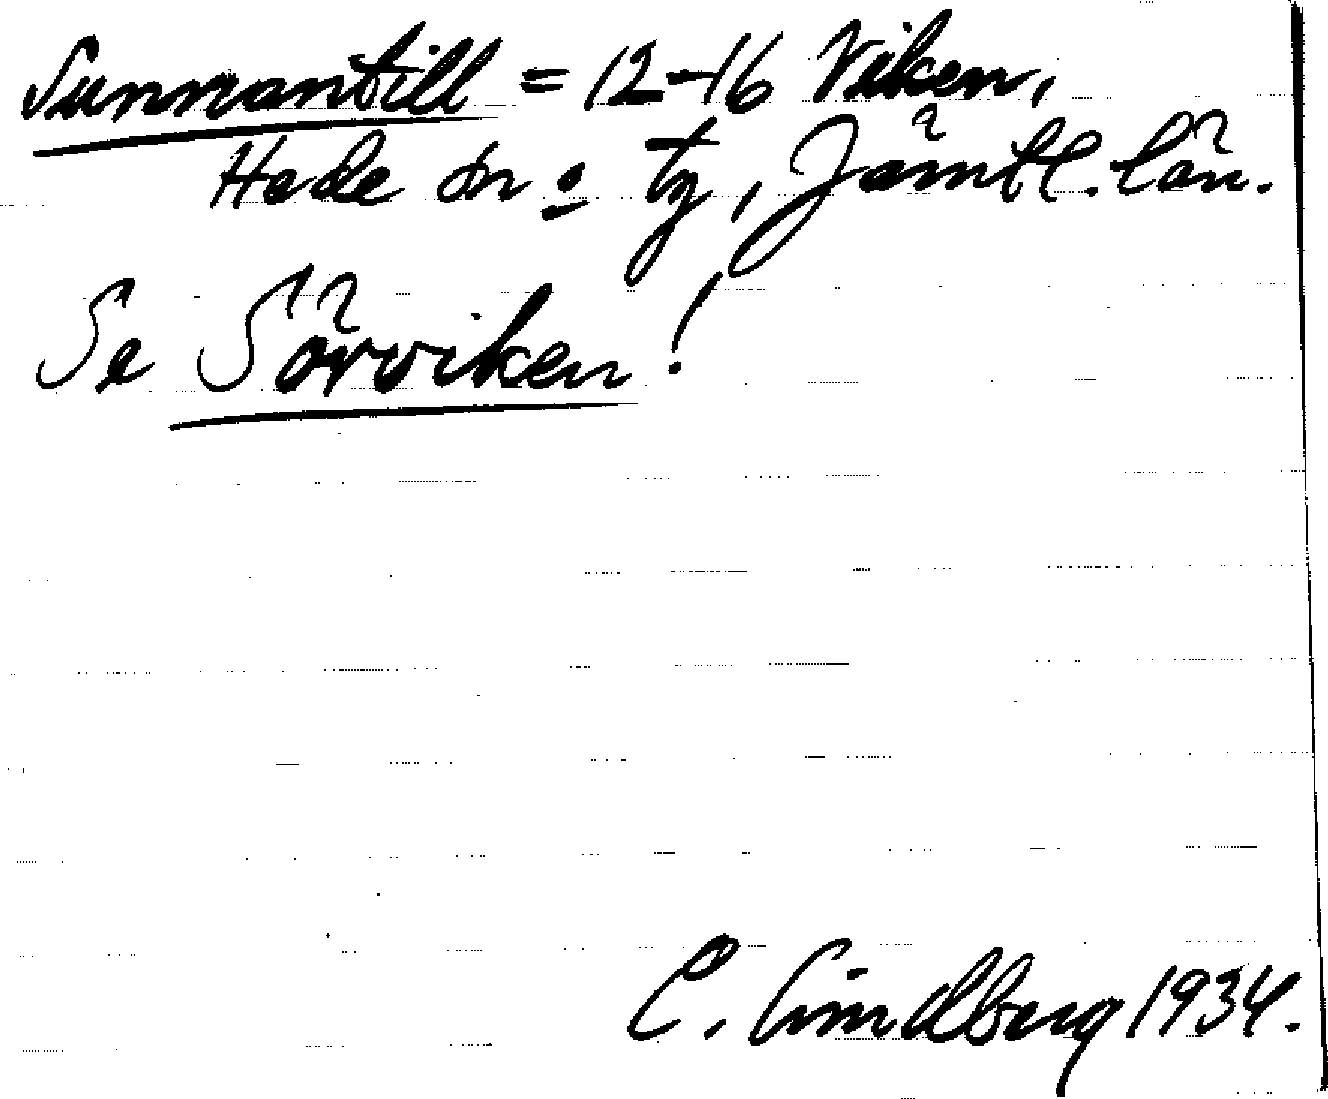 Sunnantill = 12-16 Viken,
Hede sn o tg, Jämtl. län.
Se Sörviken!
C. Lindberg 1934.